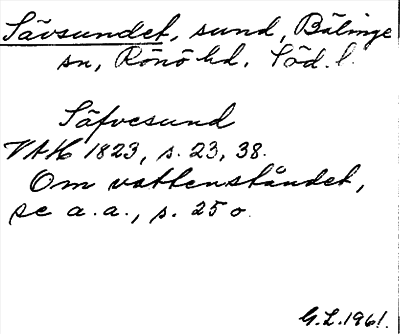 Sävsundet, sund, Bälinge
sn, Rönö hd. Söd. l.
Säfvesund
VAH 1823, s. 23, 38.
Om vattenståndet,
se a.a., s. 25 o.
G.L. 1961.